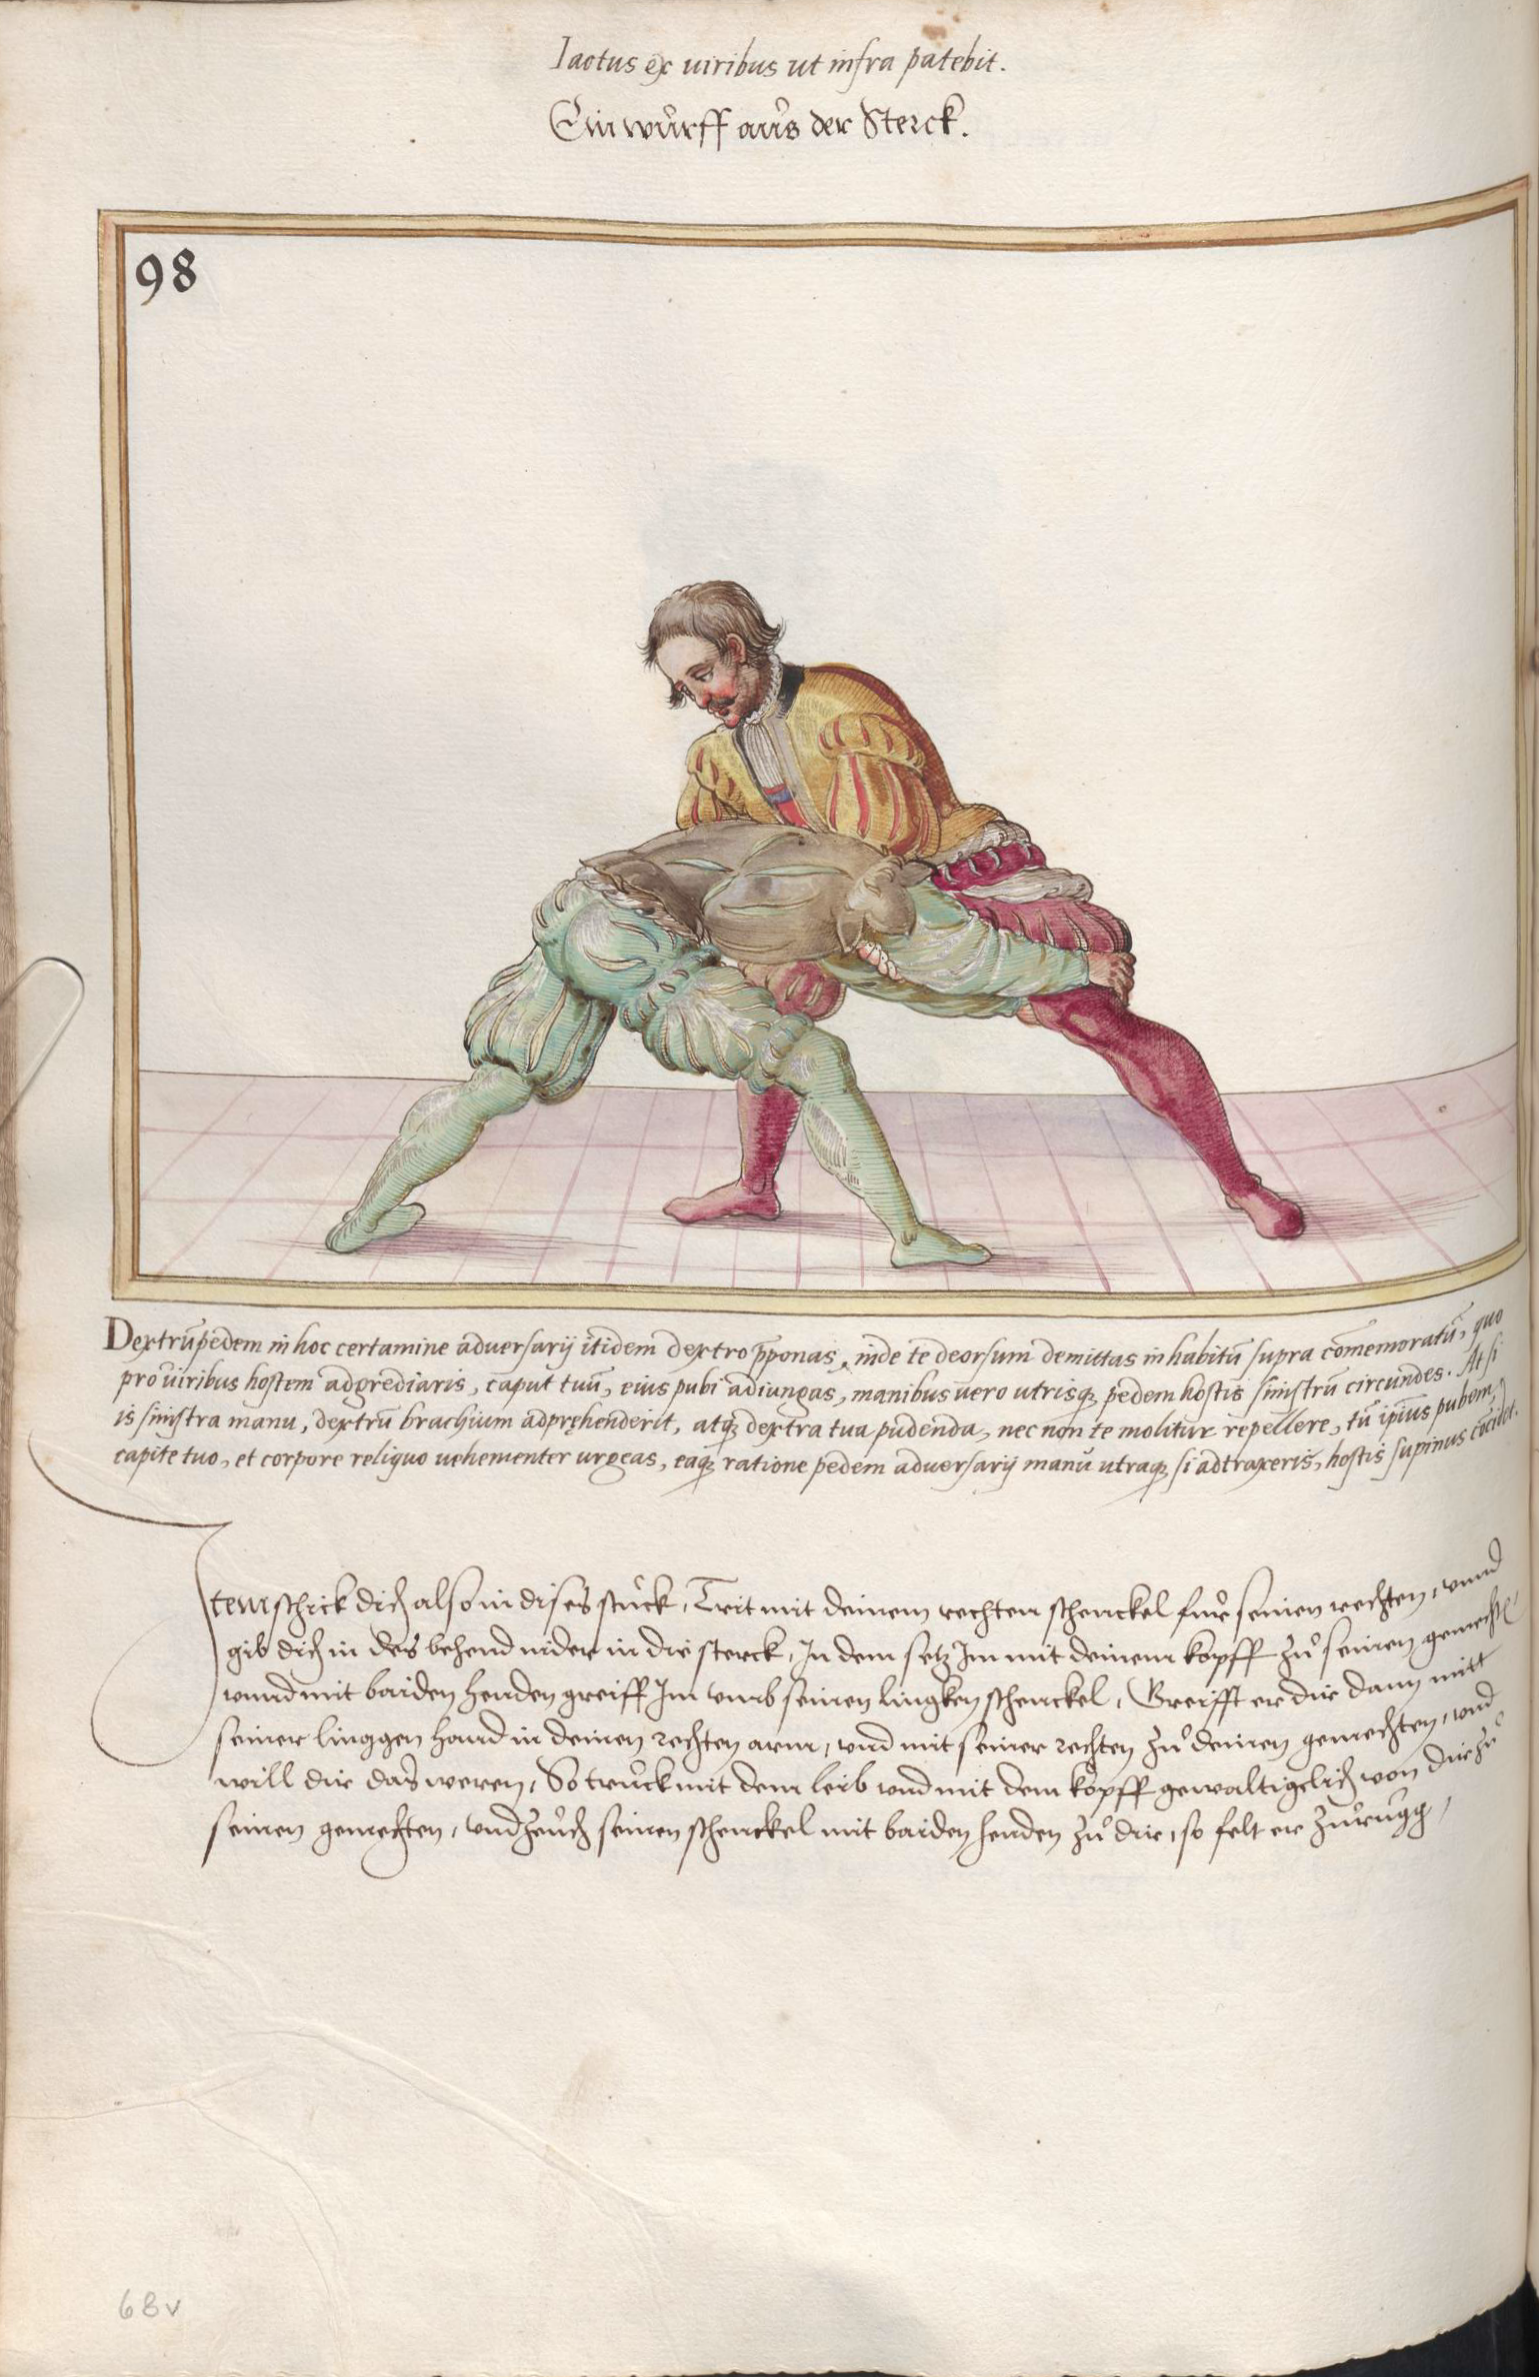 Iactus ex uiribus ut infra patebit.
Ein wůrff aus der Sterck.
98
Dextrũ pedem in hoc certamine aduersarij itidem dextro p̄ponas, inde te deorsum demittas in habitũ supra com̄emoratũ, quo
pro uiribus hostem adgrediaris, caput tuũ, eius pubi adiungas, manibus uero utrisq; pedem hostis sinistrũ circundes. At si
is sinistra manu, dextrũ brachium adpręhenderit, atq; dextra tua pudenda, nec non te molitur repellere, tũ ipsius pubem,
capite tuo, et corpore reliquo uehementer urgeas, eaq; ratione pedem aduersarij manũ utraq; si adtraxeris, hostis supinus cõcidet.
Item schick dich also in dises stuck, Trit mit deinem rechten schenckel fur seinen rechten, vnnd
gib dich in des behend nider in die sterck, In dem setz Im mit deinem kopff zů seinen gemechtẽ,
vnnd mit baiden henden greiff Im vmb seinen lingken schenckel, Greifft er dir dann mitt
seiner linggen hand in deinen rechten arm, vnd mit seiner rechten zů deinen gemechten, vnd
will dir das weren, So truck mit dem leib vnd mit dem kopff gewaltigclich von dir zů
seinen gemechten, vnd zeuch seinen schenckel mit baiden henden zů dir, so felt er zůrugg,
68v